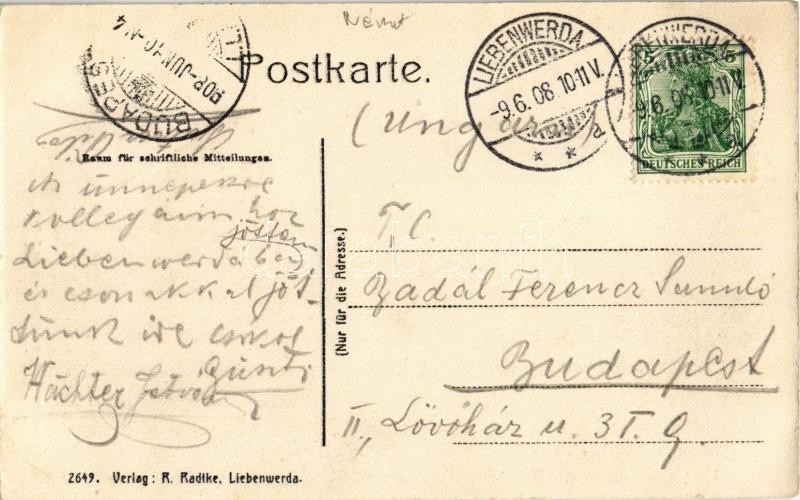 Német
Postkarte.
BUDAPEST
908 JUN 10 N4
LIEBENWERDA
-9.6.08.10-11V.
* * a
-9.6.08.10-11V.
5
DEUTSCHES REICH
(Ungarn)
Raum für schriftliche Mitteilungen.
Az ünnepekre
kollegáim hoz
jöttem
Liebenwerdaban
és csonakkal jöt-
tünk ide
Guszti
Hächter István
(Nur für die Adresse.)
T. C.
Zadál Ferencz
Budapest
II., Lövőház u. 37. 9.
2649. Verlag: R. Radtke, Liebenwerda.